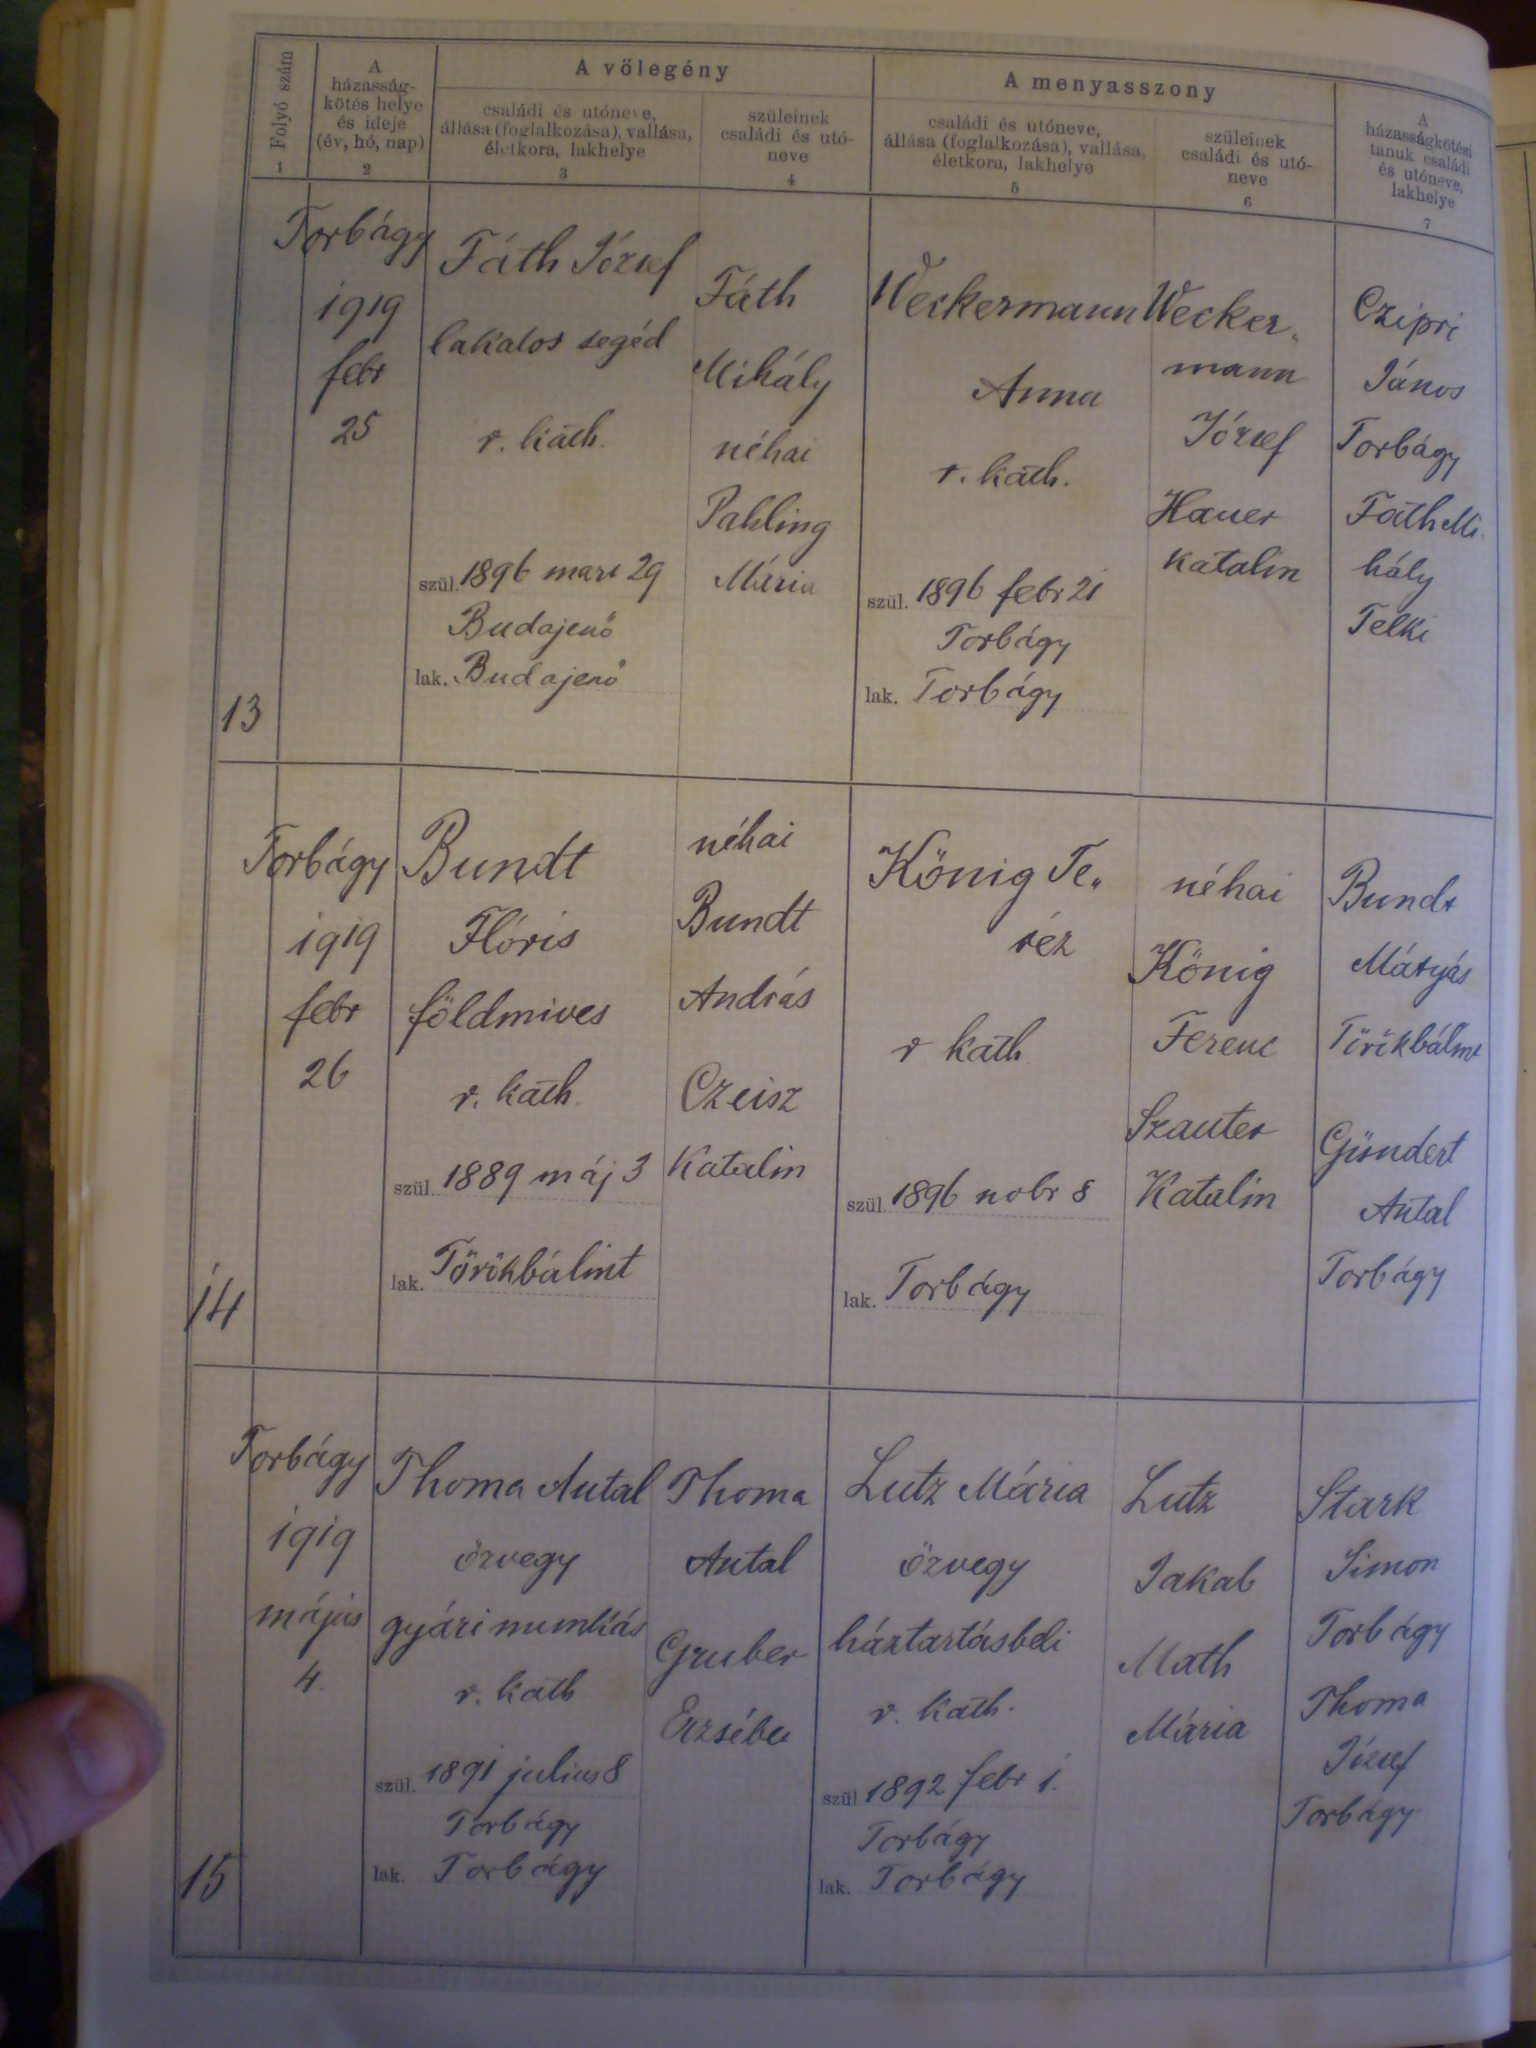 Folyó szám
1
A
házasság-
kötés helye
és ideje
(év, hó, nap)
2
A vőlegény
családi és utóneve,
állása (foglalkozása), vallása,
életkora, lakhelye
3
szüleinek
családi és utó-
neve
4
A menyasszony
családi és utóneve,
állása (foglalkozása), vallása,
életkora, lakhelye
5
szüleinek
családi és utó-
neve
6
A
házasságkötési
tanuk családi
és utóneve,
lakhelye
7
13
Torbágy
1919
febr
25
Fáth József
lakatos segéd
r. kath.
szül. 1896 marc 29
Budajenő
lak. Budajenő
Fáth
Mihály
néhai
Pahling
Mária
Weckermann
Anna
r. kath.
szül. 1896 febr 21
Torbágy
lak. Torbágy
Wecker„
mann
József
Hauer
Katalin
Czipri
János
Torbágy
Fáth Mi.
hály
Telki
14
Torbágy
1919
febr
26
Bundt
Flóris
földmives
r. kath.
szül. 1889 máj 3
lak. Törökbálint
néhai
Bundt
András
Czeisz
Katalin
König Te„
réz
r kath.
szül. 1896 nobr 8
lak. Torbágy
néhai
König
Ferenc
Szauter
Katalin
Bundt
Mátyás
Törökbálint
Gündert
Antal
Torbágy
15
Torbágy
1919
május
4.
Thoma Antal
özvegy
gyári munkás
r. kath
szül. 1891 julius 8
Torbágy
lak. Torbágy
Thoma
Antal
Gruber
Erzsébet
Lutz Mária
özvegy
háztartásbeli
r. kath.
szül. 1892 febr 1.
Torbágy
lak. Torbágy
Lutz
Jakab
Math
Mária
Stark
Simon
Torbágy
Thoma
József
Torbágy